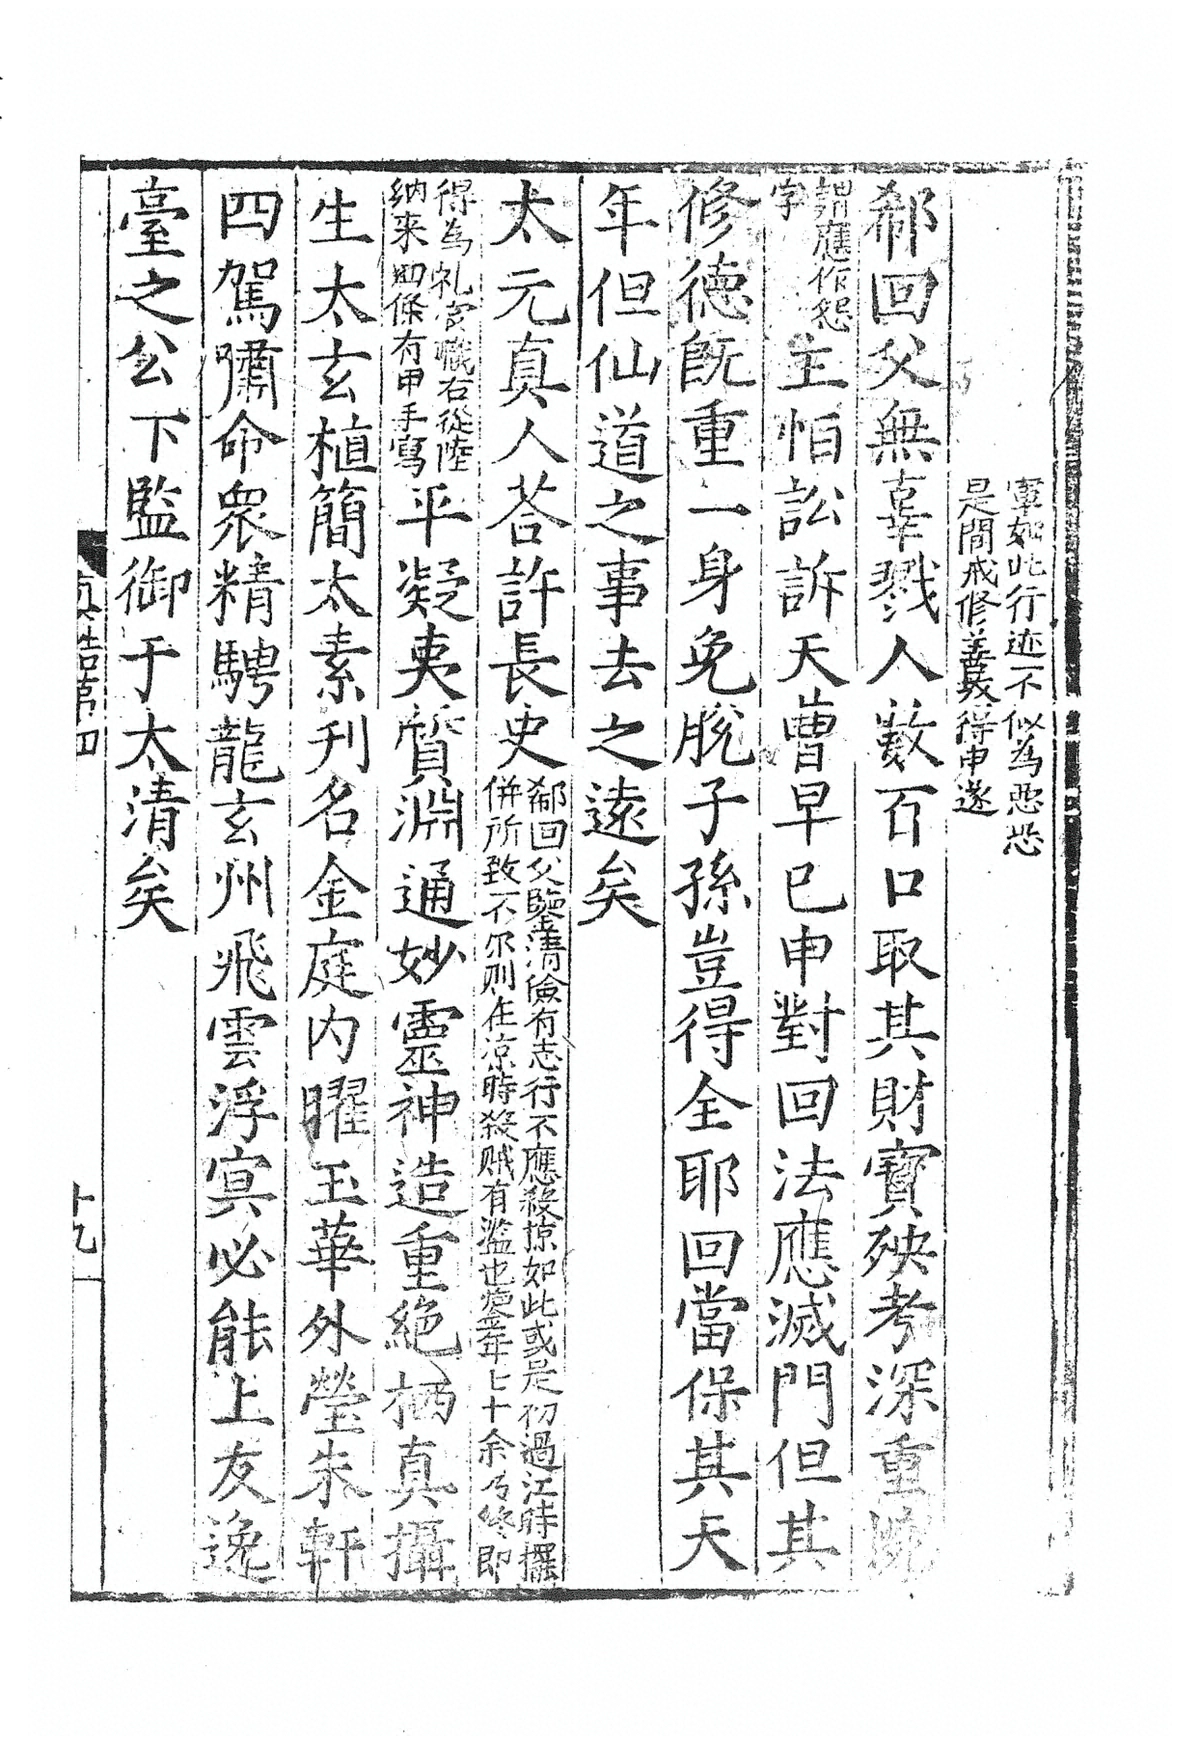 軍如此行迹不似為惡恐
是間戒修善
得申遂
郗回父無辜戮人數百口取其財寶殃考深重
謂應作怨
字
主怕訟訴天曹早已申對回法應滅門但其
修德既重一身免脫子孫豈得全耶回當保其天
年但仙道之事去之遠矣
太元真人荅許長史
郗回父鑒清儉有志行不應殺掠如此或是初過江時擺
併所致不尔則在凉時殺賊有濫也鑒年七十余乃終即
得為礼
右從陸
納来四條有甲手寫
平凝夷質淵通妙靈神造重絶栖真攝
生太玄植簡太素刋名金庭内曜玉華外瑩朱軒
四駕嘯命衆精騁龍玄州飛雲浮㝠必能上友逸
臺之公下監御于太清矣
真誥第四
十九